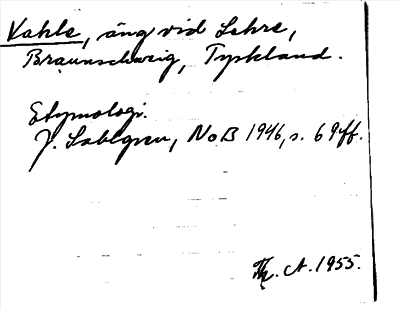 Vahle, äng vid Lehre,
Braunschweig, Tyskland.
Etymologi.
J. Sahlgren, NoB 1946, s. 69ff.
A. 1955.